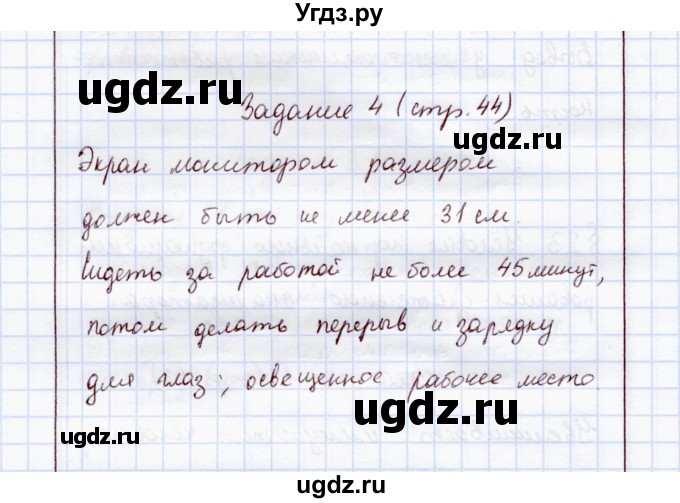 Угдз.ру
Задание 4 (стр. 44)
ugdz.ru
ugdz.ru
Экран монитором размером
должен быть не менее 31 см.
ugdz.ru
ugdz.ru
Сидеть за работой не более 45 минут,
потом делать перерыв и зарядку
ugdz.ru
ugdz.ru
для глаз; освещенное рабочее место
ugdz.ru
ugdz.ru
Угдз.ру